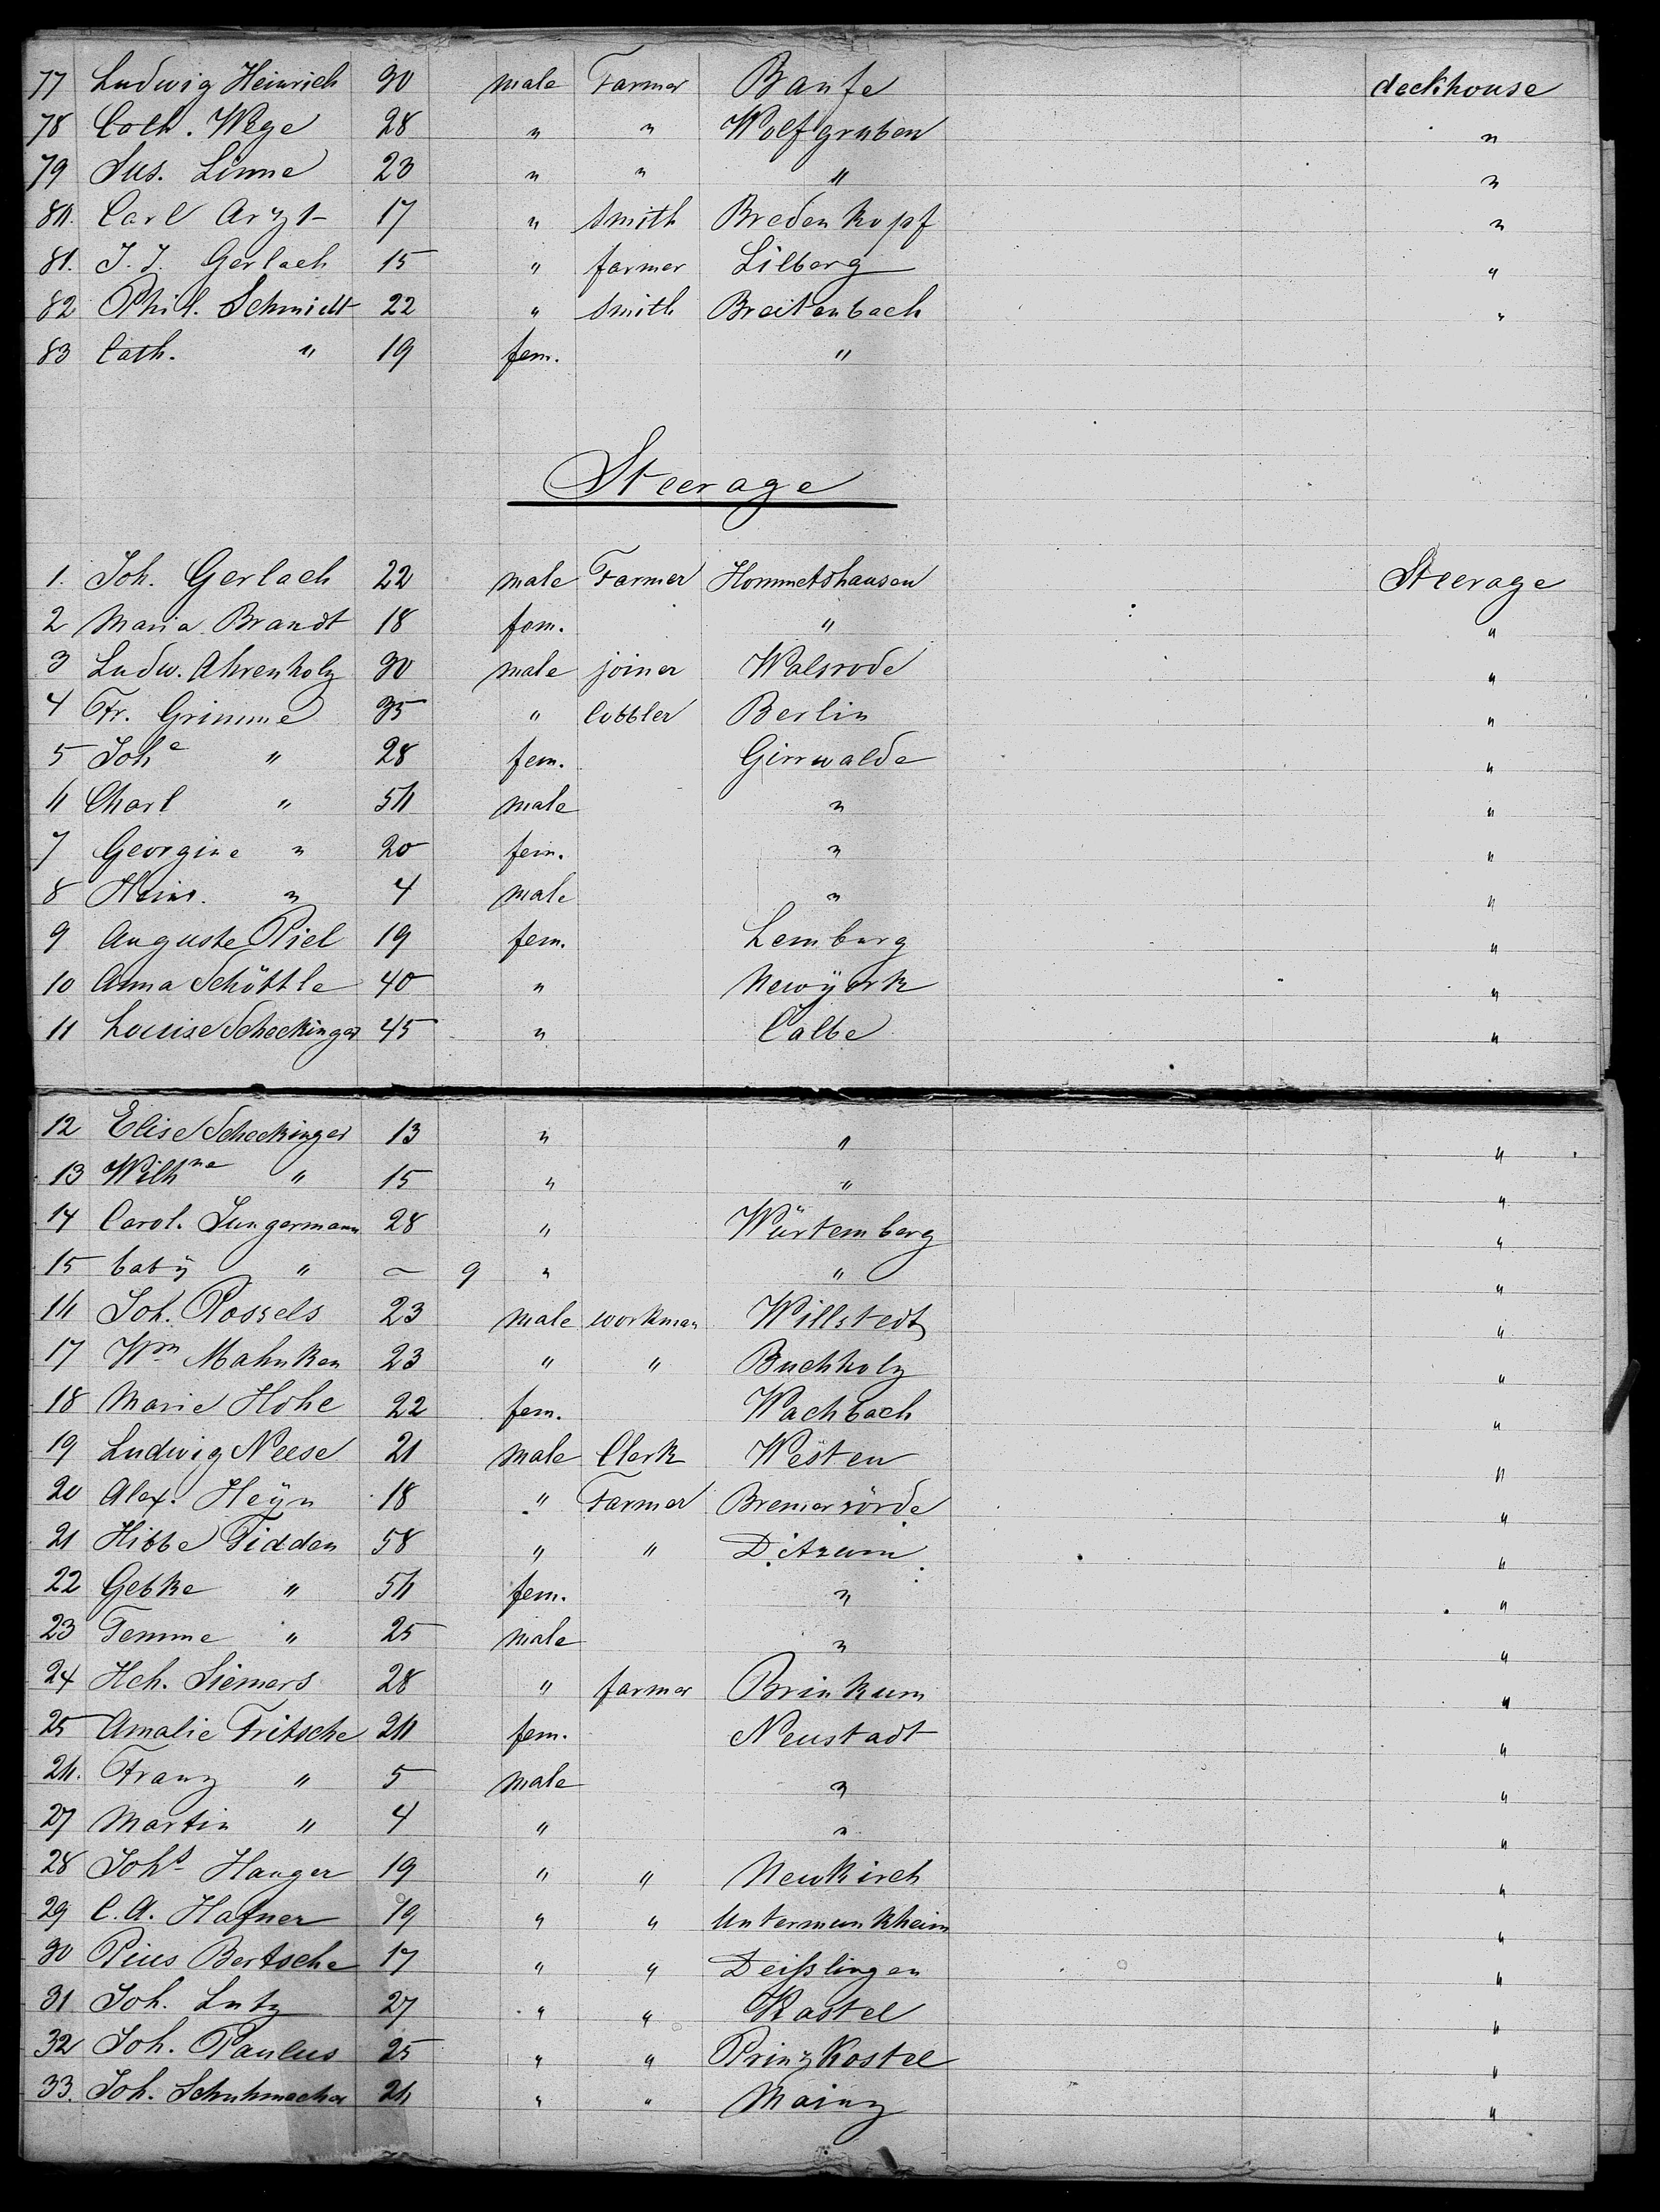 77 Ludwig Heinrich 30 male Farmer Banfe deckhouse
78 Cath. Wege 28 " " Wolfgruben "
79 Sus. Linne 23 " " " "
80. Carl Arzt 17 " Smith Bredenkopf "
81. J. J. Gerlach 15 " farmer Lilberg "
82 Phil. Schmidt 22 " Smith Breitenbach "
83 Cath. " 19 fem. "
Steerage
1. Joh. Gerlach 22 male Farmer Hommetshausen Steerage
2 Maria Brandt 18 fem. " "
3 Ludw. Ahrenholz 30 male joiner Walsrode "
4 Fr. Grimme 35 " Cobbler Berlin "
5 Johe " 28 fem. Girrwalde "
6 Charl " 56 male " "
7 Georgine " 20 fem. " "
8 Heinr. " 4 male " "
9 Auguste Piel 19 fem. Lemburg "
10 Anna Schöttle 40 " Newÿork "
11 Louise Scheckinger 45 " Calbe "
12 Elise Scheckinger 13 " " "
13 Wilhne " 15 " " "
14 Carol. Jungermann 28 " Würtemberg "
15 babÿ " ~ 9 " " "
16 Joh. Possels 23 male workman Willstedt "
17 Wm Mahnken 23 " " Buchholz "
18 Marie Hohe 22 fem. Wachbach "
19 Ludwig Neese 21 male Clerk Westen "
20 Alex. Heÿn 18 " Farmer Bremervörde "
21 Hibbe Tidden 58 " " Ditzum "
22 Gebke " 56 fem. " "
23 Temme " 25 male " "
24 Hch. Siemers 28 " farmer Brinkum "
25 Amalie Fritsche 26 fem. Neustadt "
26. Franz " 5 male " "
27 Martin " 4 " " "
28 Johs Hanger 19 " " Neukirch "
29 C. A. Hafner 19 " " Untermunkheim "
30 Pius Bertsche 17 " " Deißlingen "
31 Joh. Lutz 27 " " Kastel "
32 Joh. Paulus 25 " " Prinzkostel "
33. Joh. Schuhmacher 26 " " Mainz "